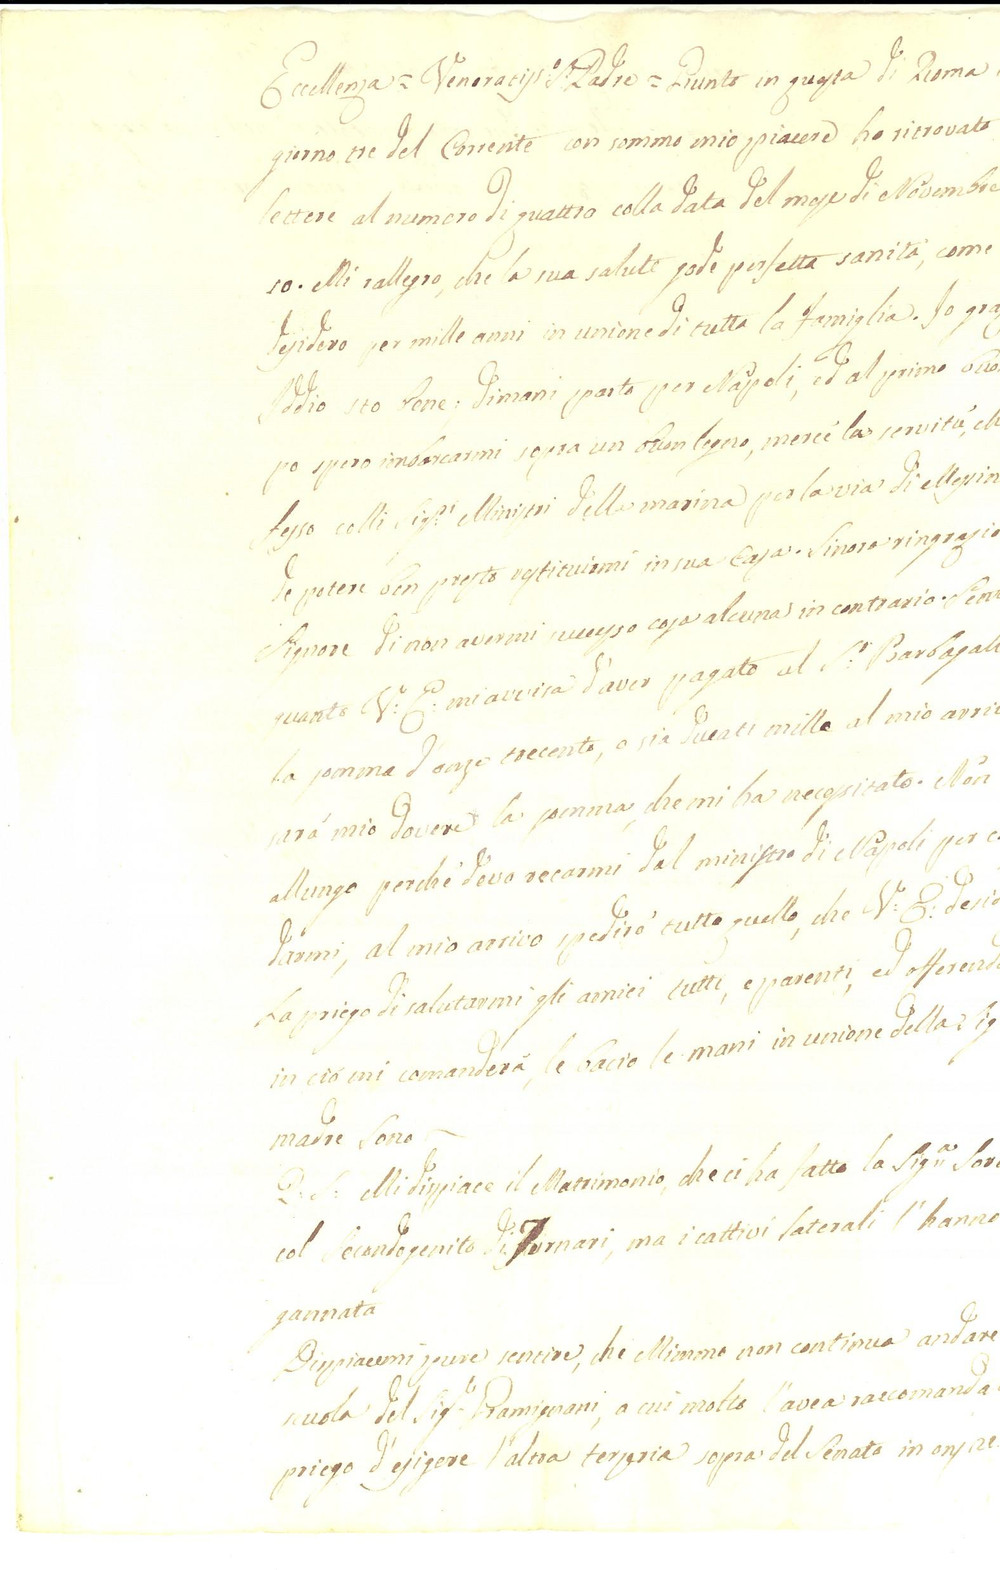 Eccellenza = Veneratiss.º S.r Padre = Giunto in questa di Roma
giorno tre del Corrente con sommo mio piacere ho ritrovato
lettere al numero di quattro colla data del mese di Novembre
so. Mi rallegro, che la sua salute gode perfetta sanità, come
desidero per mille anni in unione di tutta la famiglia. Io gra
Iddio sto bene; dimani parto per Napoli, ed al primo buo
po spero imbarcarmi sopra un buon legno, mercè la servitù, ch
fesso colli Sig.ri Ministri della marina per la via di Messin
de potere ben presto restituirmi in sua Casa. Sinora ringrazio
Signore di non avermi successo cosa alcuna in contrario. Sen
quanto V.E. mi avvisa d'aver pagato al S.r Barbagall
la somma d'onze trecento, o sia ducati mille al mio arriv
sarà mio dovere la somma, che mi ha necessitato. Non
allungo perchè devo recarmi dal ministro di Napoli per c
darmi, al mio arrivo spedirò tutto quello, che V.E. desid
La priego di salutarmi gli amici tutti, e parenti, ed offerend
in ciò mi comanderà, le bacio le mani in unione della Sig
madre Sono
P.S. Mi dispiace il Matrimonio, che ci ha fatto la Sig.ra Sore
col Secondogenito di Furnari, ma i cattivi laterali l'hanno
gannata
Dispiacemi pure sentire, che Mimmo non continua andare
scuola del Sig.r Gramignani, a cui molto l'avea raccomanda
priego d'esigere l'altra terzeria sopra del Senato in onze